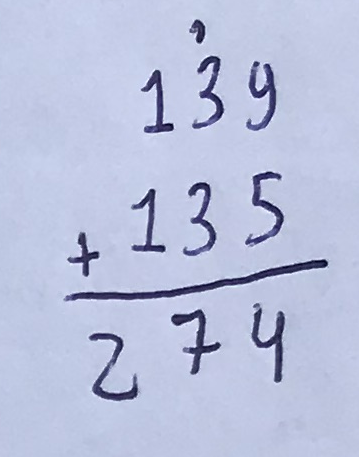 1
139
+ 135
274